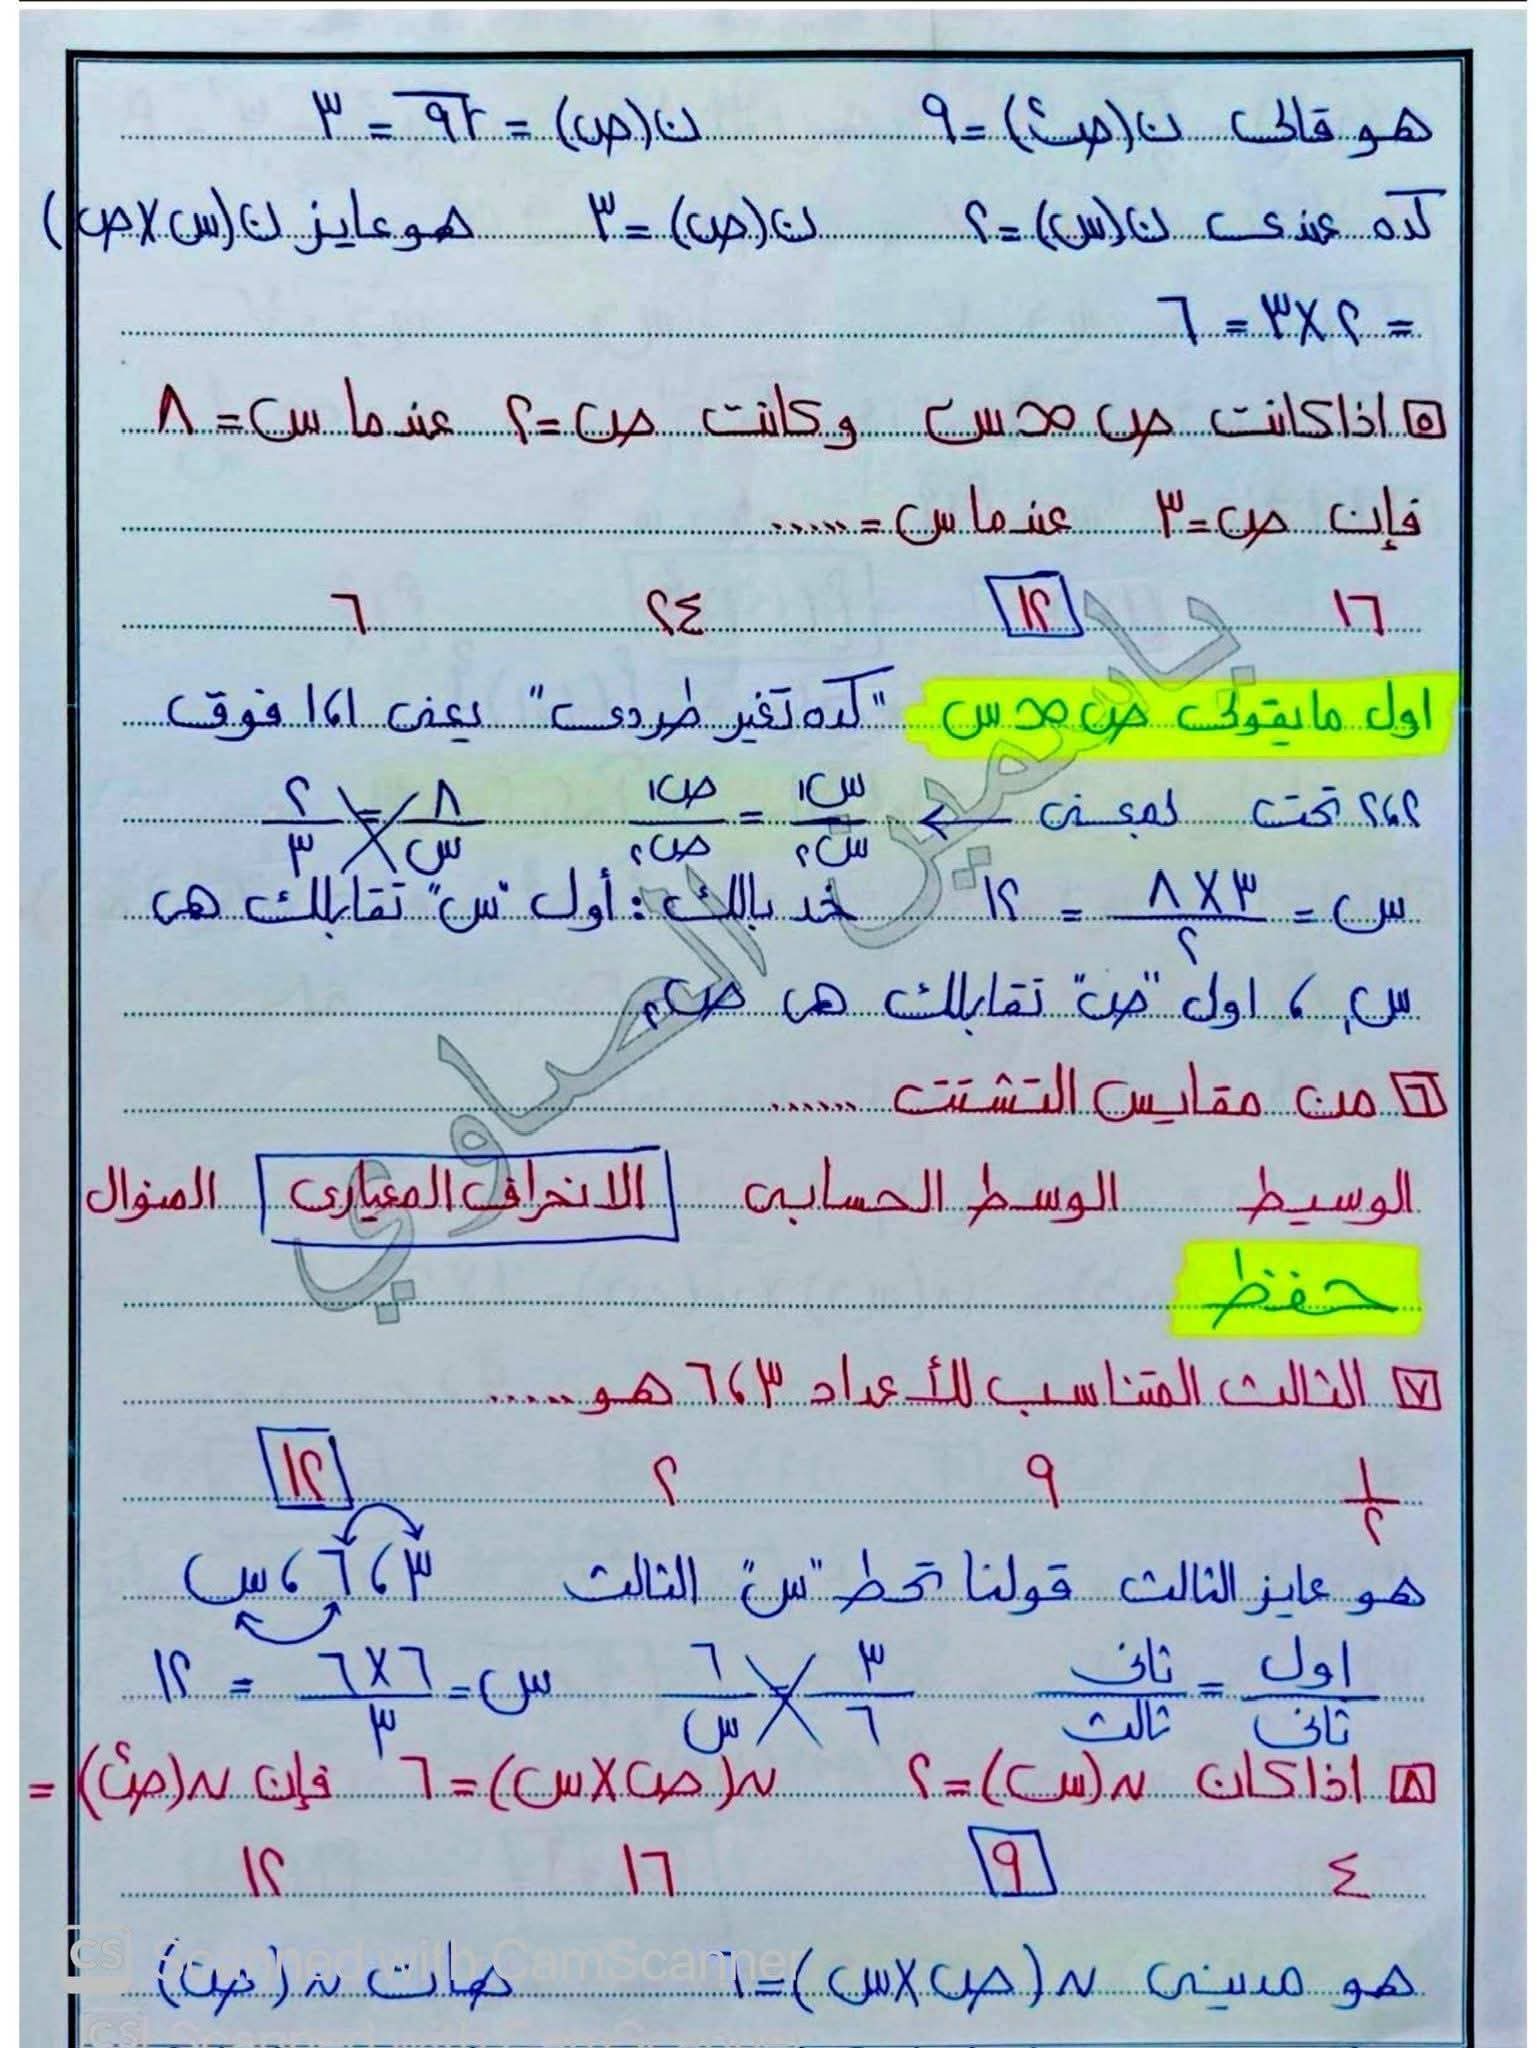 هو قالى ن(ص²) = ٩ ن(ص) = √٩ = ٣
كده عندى ن(س) = ٢ ن(ص) = ٣ هو عايز ن(س × ص)
= ٢ × ٣ = ٦
٥ اذا كانت ص ∝ س وكانت ص = ٢ عندما س = ٨
فإن ص = ٣ عندما س = ......
١٦ ١٢ ٢٤ ٦
اول ما يقولى ص ∝ س "كده تغير طردى" يعنى ١،١ فوق
٢،٢ تحت بمعنى ← س١/س٢ = ص١/ص٢ ٨/س = ٢/٣
س = ٣×٨/٢ = ١٢ خد بالك : أول "س" تقابلك هى
س١ ، اول "ص" تقابلك هى ص١
٦ من مقايس التشتت ......
الوسيط الوسط الحسابى الانحراف المعيارى المنوال
حفظ
٧ الثالث المتناسب للأعداد ٣،٦ هو ......
١/٢ ٩ ٢ ١٢
هو عايز الثالث قولنا تحط "س" الثالث ٣،٦،س
اول/ثانى = ثانى/ثالث ٣/٦ = ٦/س س = ٦×٦/٣ = ١٢
٨ اذا كان ن(س) = ٢ ن(ص × س) = ٦ فإن ن(ص²) =
٤ ٩ ١٦ ١٢
هو مدينى ن(ص × س) = ٦ هات ن(ص)
ياسمين الصاوي
CS Scanned with CamScanner
CS Scanned with CamScanner